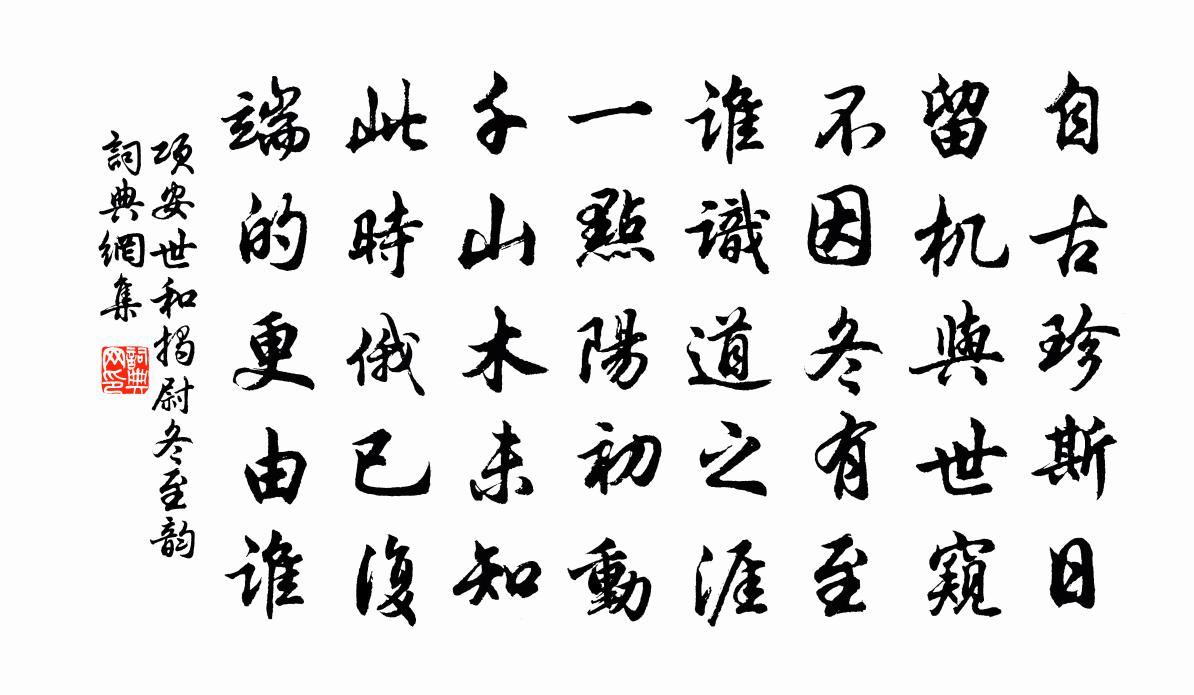 自古珍斯日
留机與世窺
不因冬有至
誰識道之涯
一點陽初動
千山木未知
此時俄已復
端的更由誰
項安世和揭尉冬至韵
詞典網集
詞典网印